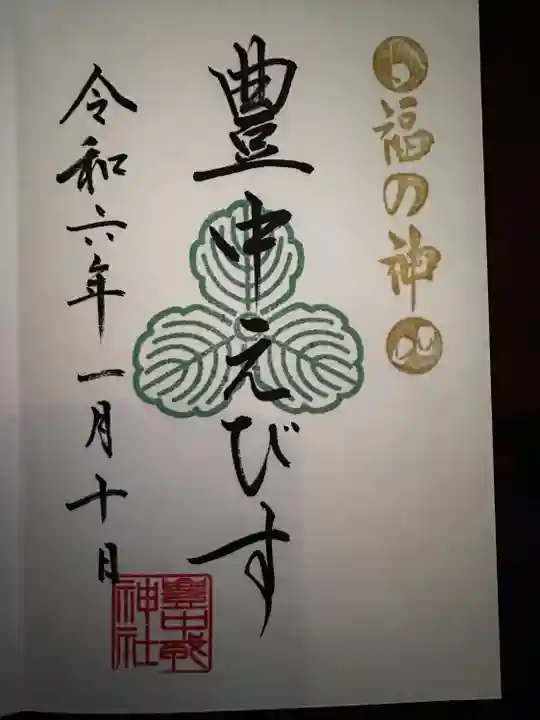 福の神
豊中えびす
令和六年一月十日
豊中戎
神社